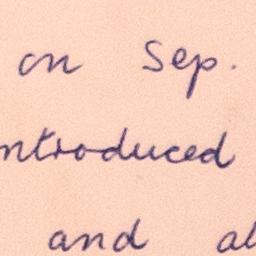 on Sep.
ntroduced
and al